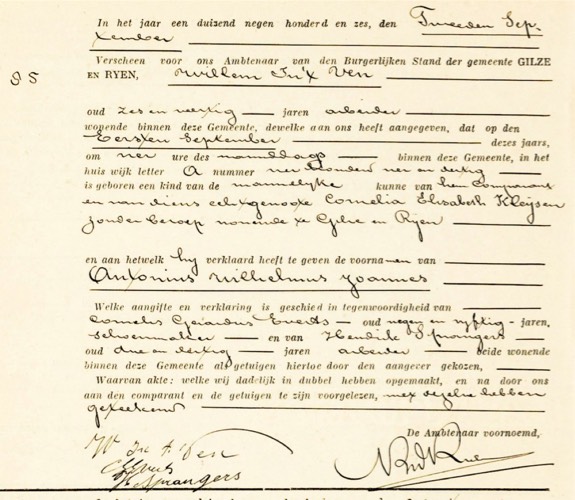 In het jaar een duizend negen honderd en zes, den Tweeden Sep-
tember
Verscheen voor ons Ambtenaar van den Burgerlijken Stand der gemeente GILZE
95 EN RYEN, Willem In 't Ven
oud zes en veertig jaren arbeider
wonende binnen deze Gemeente, dewelke aan ons heeft aangegeven, dat op den
Eersten September dezes jaars,
om vier ure des namiddags binnen deze Gemeente, in het
huis wijk letter A nummer vier honderd vier en dertig
is geboren een kind van de mannelijke kunne van hem comparant
en van diens echtgenoote Cornelia Elisabeth Kleijsen
zonder beroep wonende te Gilze en Ryen
en aan hetwelk hij verklaard heeft te geven de voornamen van
Antonius Wilhelmus Joannes
Welke aangifte en verklaring is geschied in tegenwoordigheid van
Cornelis Gerardus Everts oud negen en vyftig jaren,
schoenmaker en van Hendrik Sprangers
oud drie en dertig jaren arbeider beide wonende
binnen deze Gemeente als getuigen hiertoe door den aangever gekozen,
Waarvan akte: welke wij dadelijk in dubbel hebben opgemaakt, en na door ons
aan den comparant en de getuigen te zijn voorgelezen, met dezelve hebben
geteekend
De Ambtenaar voornoemd,
W In 't Ven
C G Everts
H Sprangers